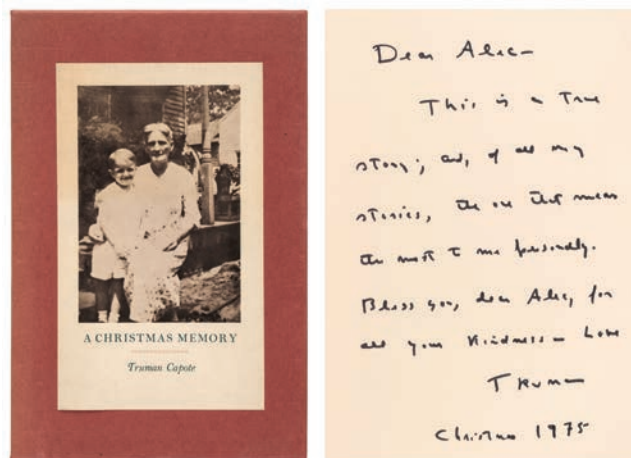 A CHRISTMAS MEMORY
Truman Capote
Dear Alec—
This is a true
story; and, of all my
stories, the one that means
the most to me personally.
Bless you, dear Alec, for
all your kindness— Love
Truman
Christmas 1975